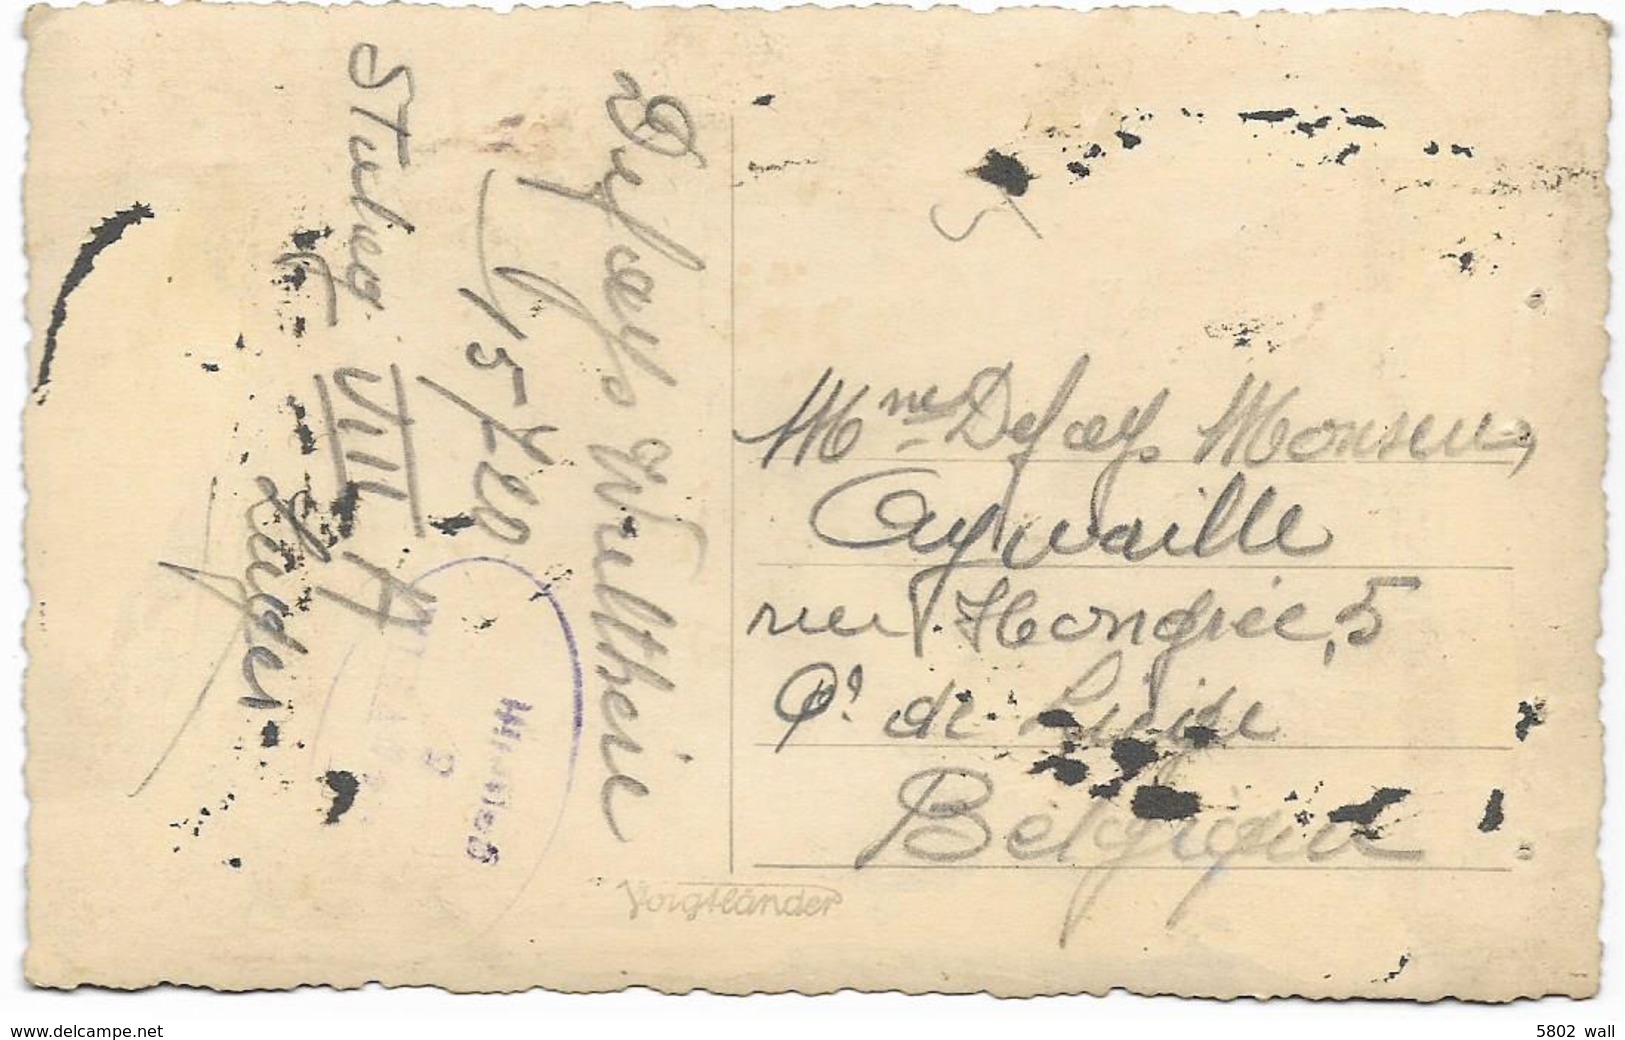 Defays Wulthere
15
Stalag VIII A
Mme Defays Monseur,
Aywaille
rue Hongrée, 5
Pr. de Liège
Belgique
Voigtländer
www.delcampe.net
5802 wall